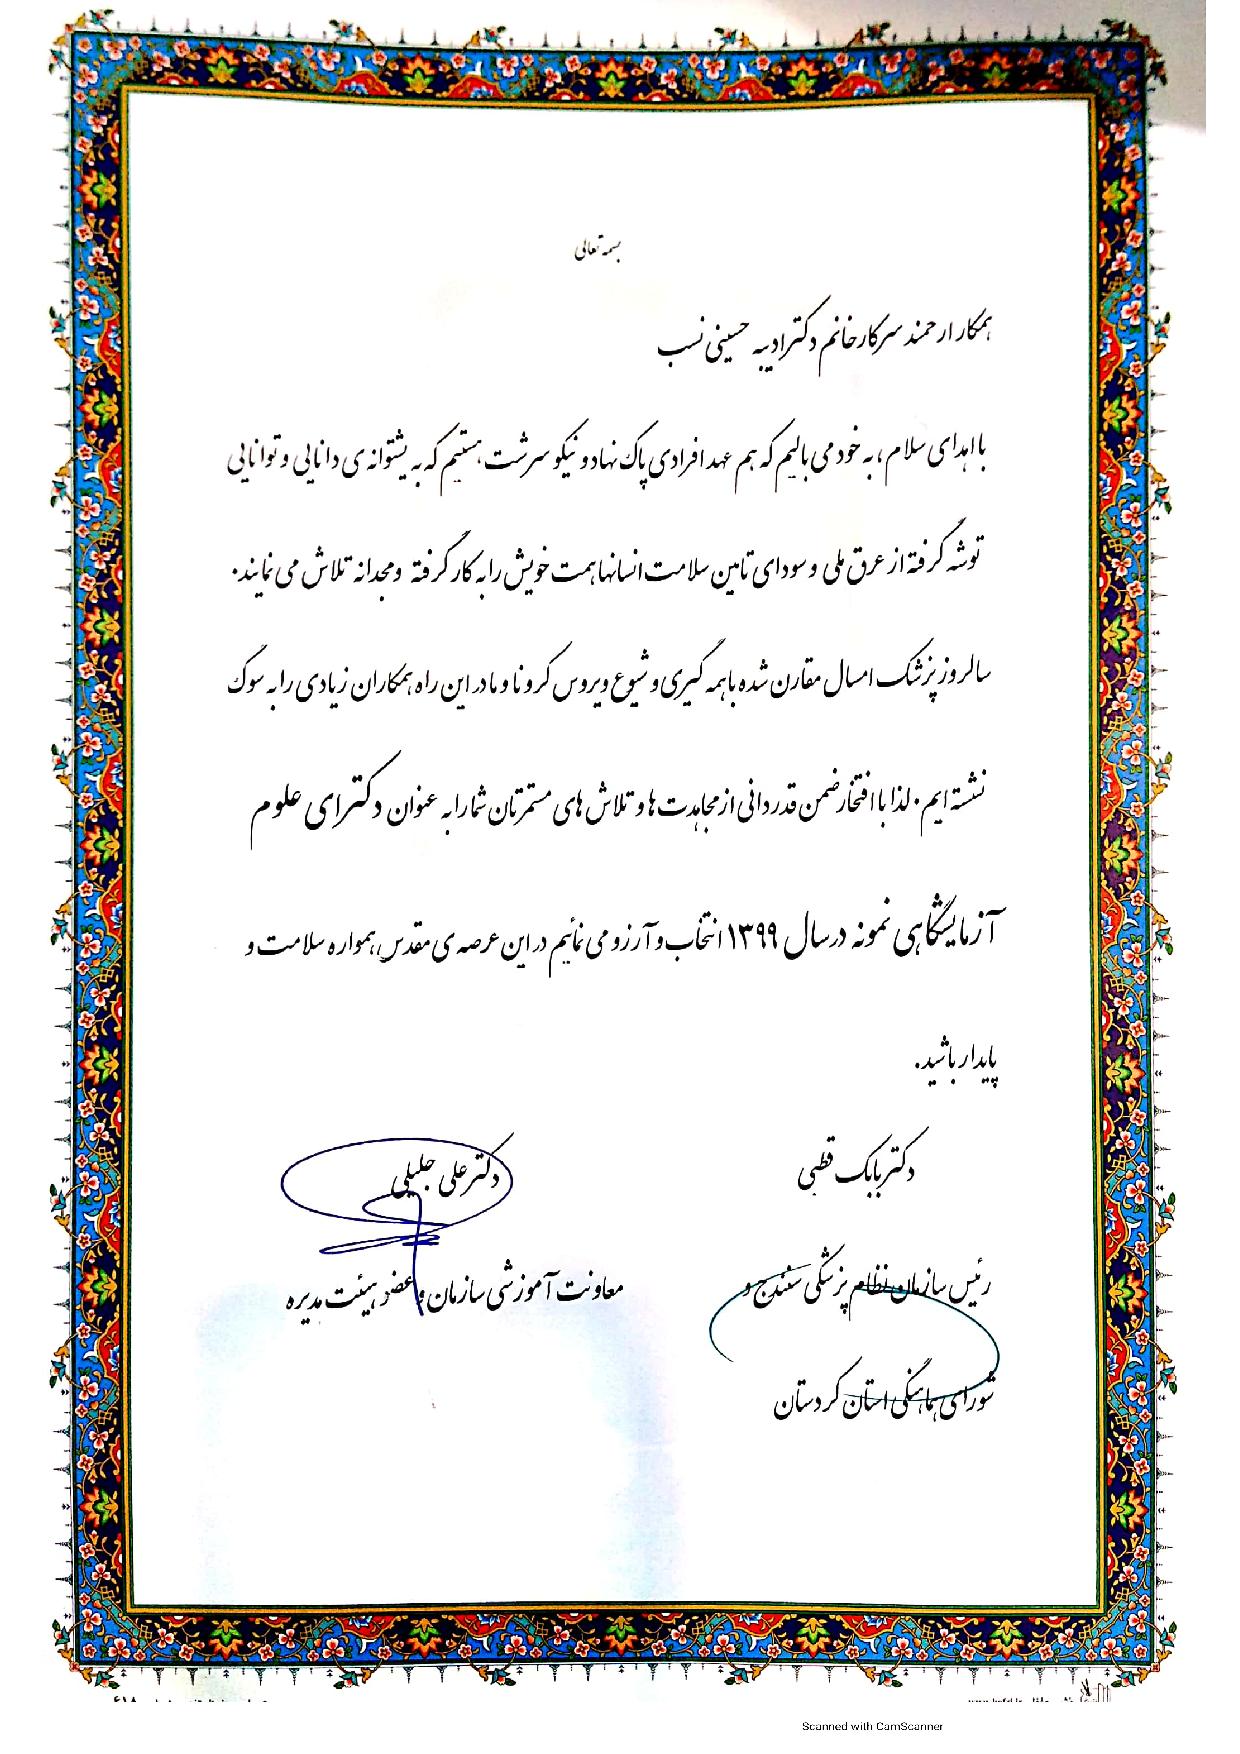 بسمه تعالی
همکار ارجمند سرکار خانم دکتر ادیبه حسینی نسب
با اهدای سلام، به خود می بالیم که هم عهد افرادی پاک نهاد و نیکو سرشت هستیم که به پشتوانه ی دانایی و توانایی
توشه گرفته از عرق ملی و سودای تامین سلامت انسانها همت خویش را به کار گرفته و مجدانه تلاش می نمایند.
سالروز پزشک امسال مقارن شده با همه گیری و شیوع ویروس کرونا و ما در این راه همکاران زیادی را به سوگ
نشسته ایم. لذا با افتخار ضمن قدردانی از مجاهدت ها و تلاش های مستمرتان شما را به عنوان دکترای علوم
آزمایشگاهی نمونه در سال ۱۳۹۹ انتخاب و آرزو می نمائیم در این عرصه ی مقدس همواره سلامت و
پایدار باشید.
دکتر بابک قطبی
دکتر علی جلیلی
رئیس سازمان نظام پزشکی سنندج و
معاونت آموزشی سازمان و عضو هیئت مدیره
شورای هماهنگی استان کردستان
Scanned with CamScanner